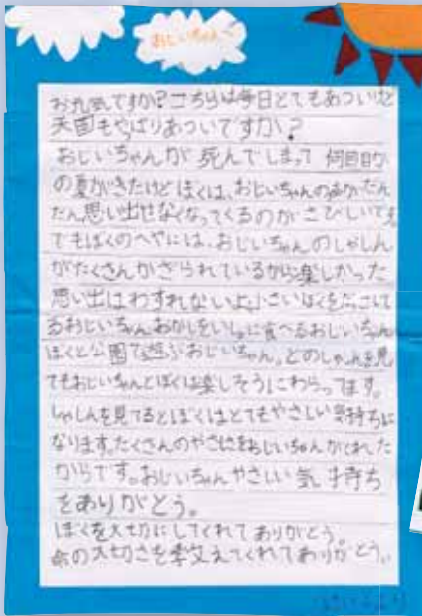 おじいちゃんへ
お元気ですか?こちらは毎日とてもあついけど
天国もやはりあついですか?
おじいちゃんが死んでしまって何回目か
の夏がきたけどぼくは、おじいちゃんの
たん思い出せなくなってくるのがさびしいです
でもぼくのへやには、おじいちゃんのしゃしん
がたくさんかざられているから楽しかった
思い出はわすれないよ。小さいぼくをだっこして
るおじいちゃんおかしをいっしょに食べるおじいちゃん
ぼくと公園で遊ぶおじいちゃん。どのしゃしんを見
てもおじいちゃんとぼくは楽しそうにわらってます。
しゃしんを見てるとぼくはとてもやさしい気持ちに
なります。たくさんのやさしさをおじいちゃんがくれた
からです。おじいちゃんやさしい気持ち
をありがとう。
ぼくを大切にしてくれてありがとう。
命の大切さを教えてくれてありがとう。